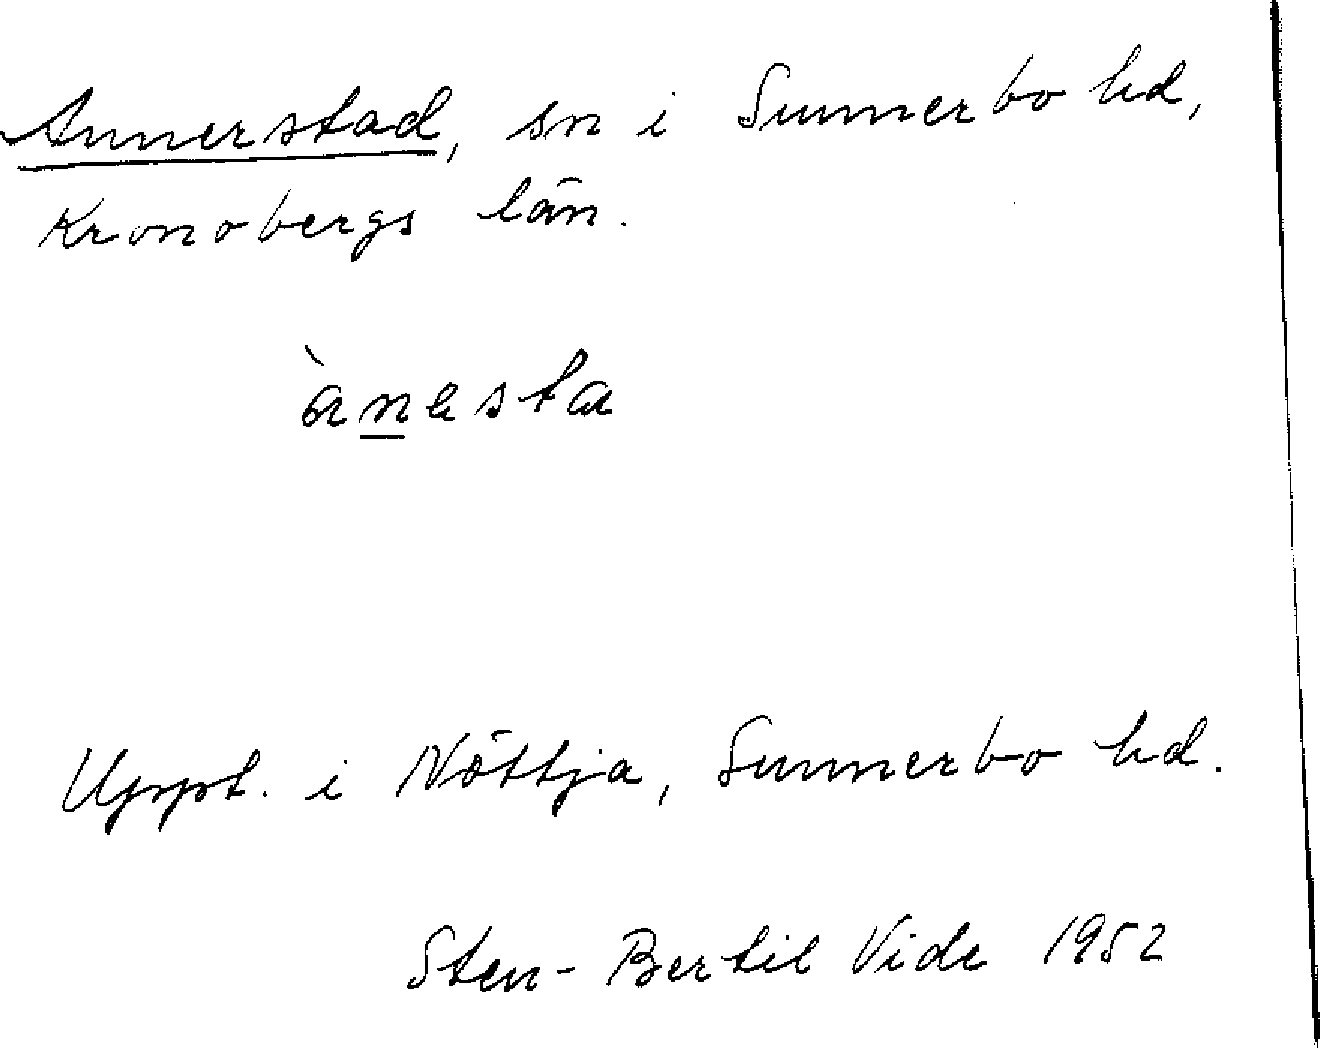 Annerstad, sn i Sunnerbo hd,
Kronobergs län.
ànesta
Uppt. i Nöttja, Sunnerbo hd.
Sten-Bertil Vide 1952